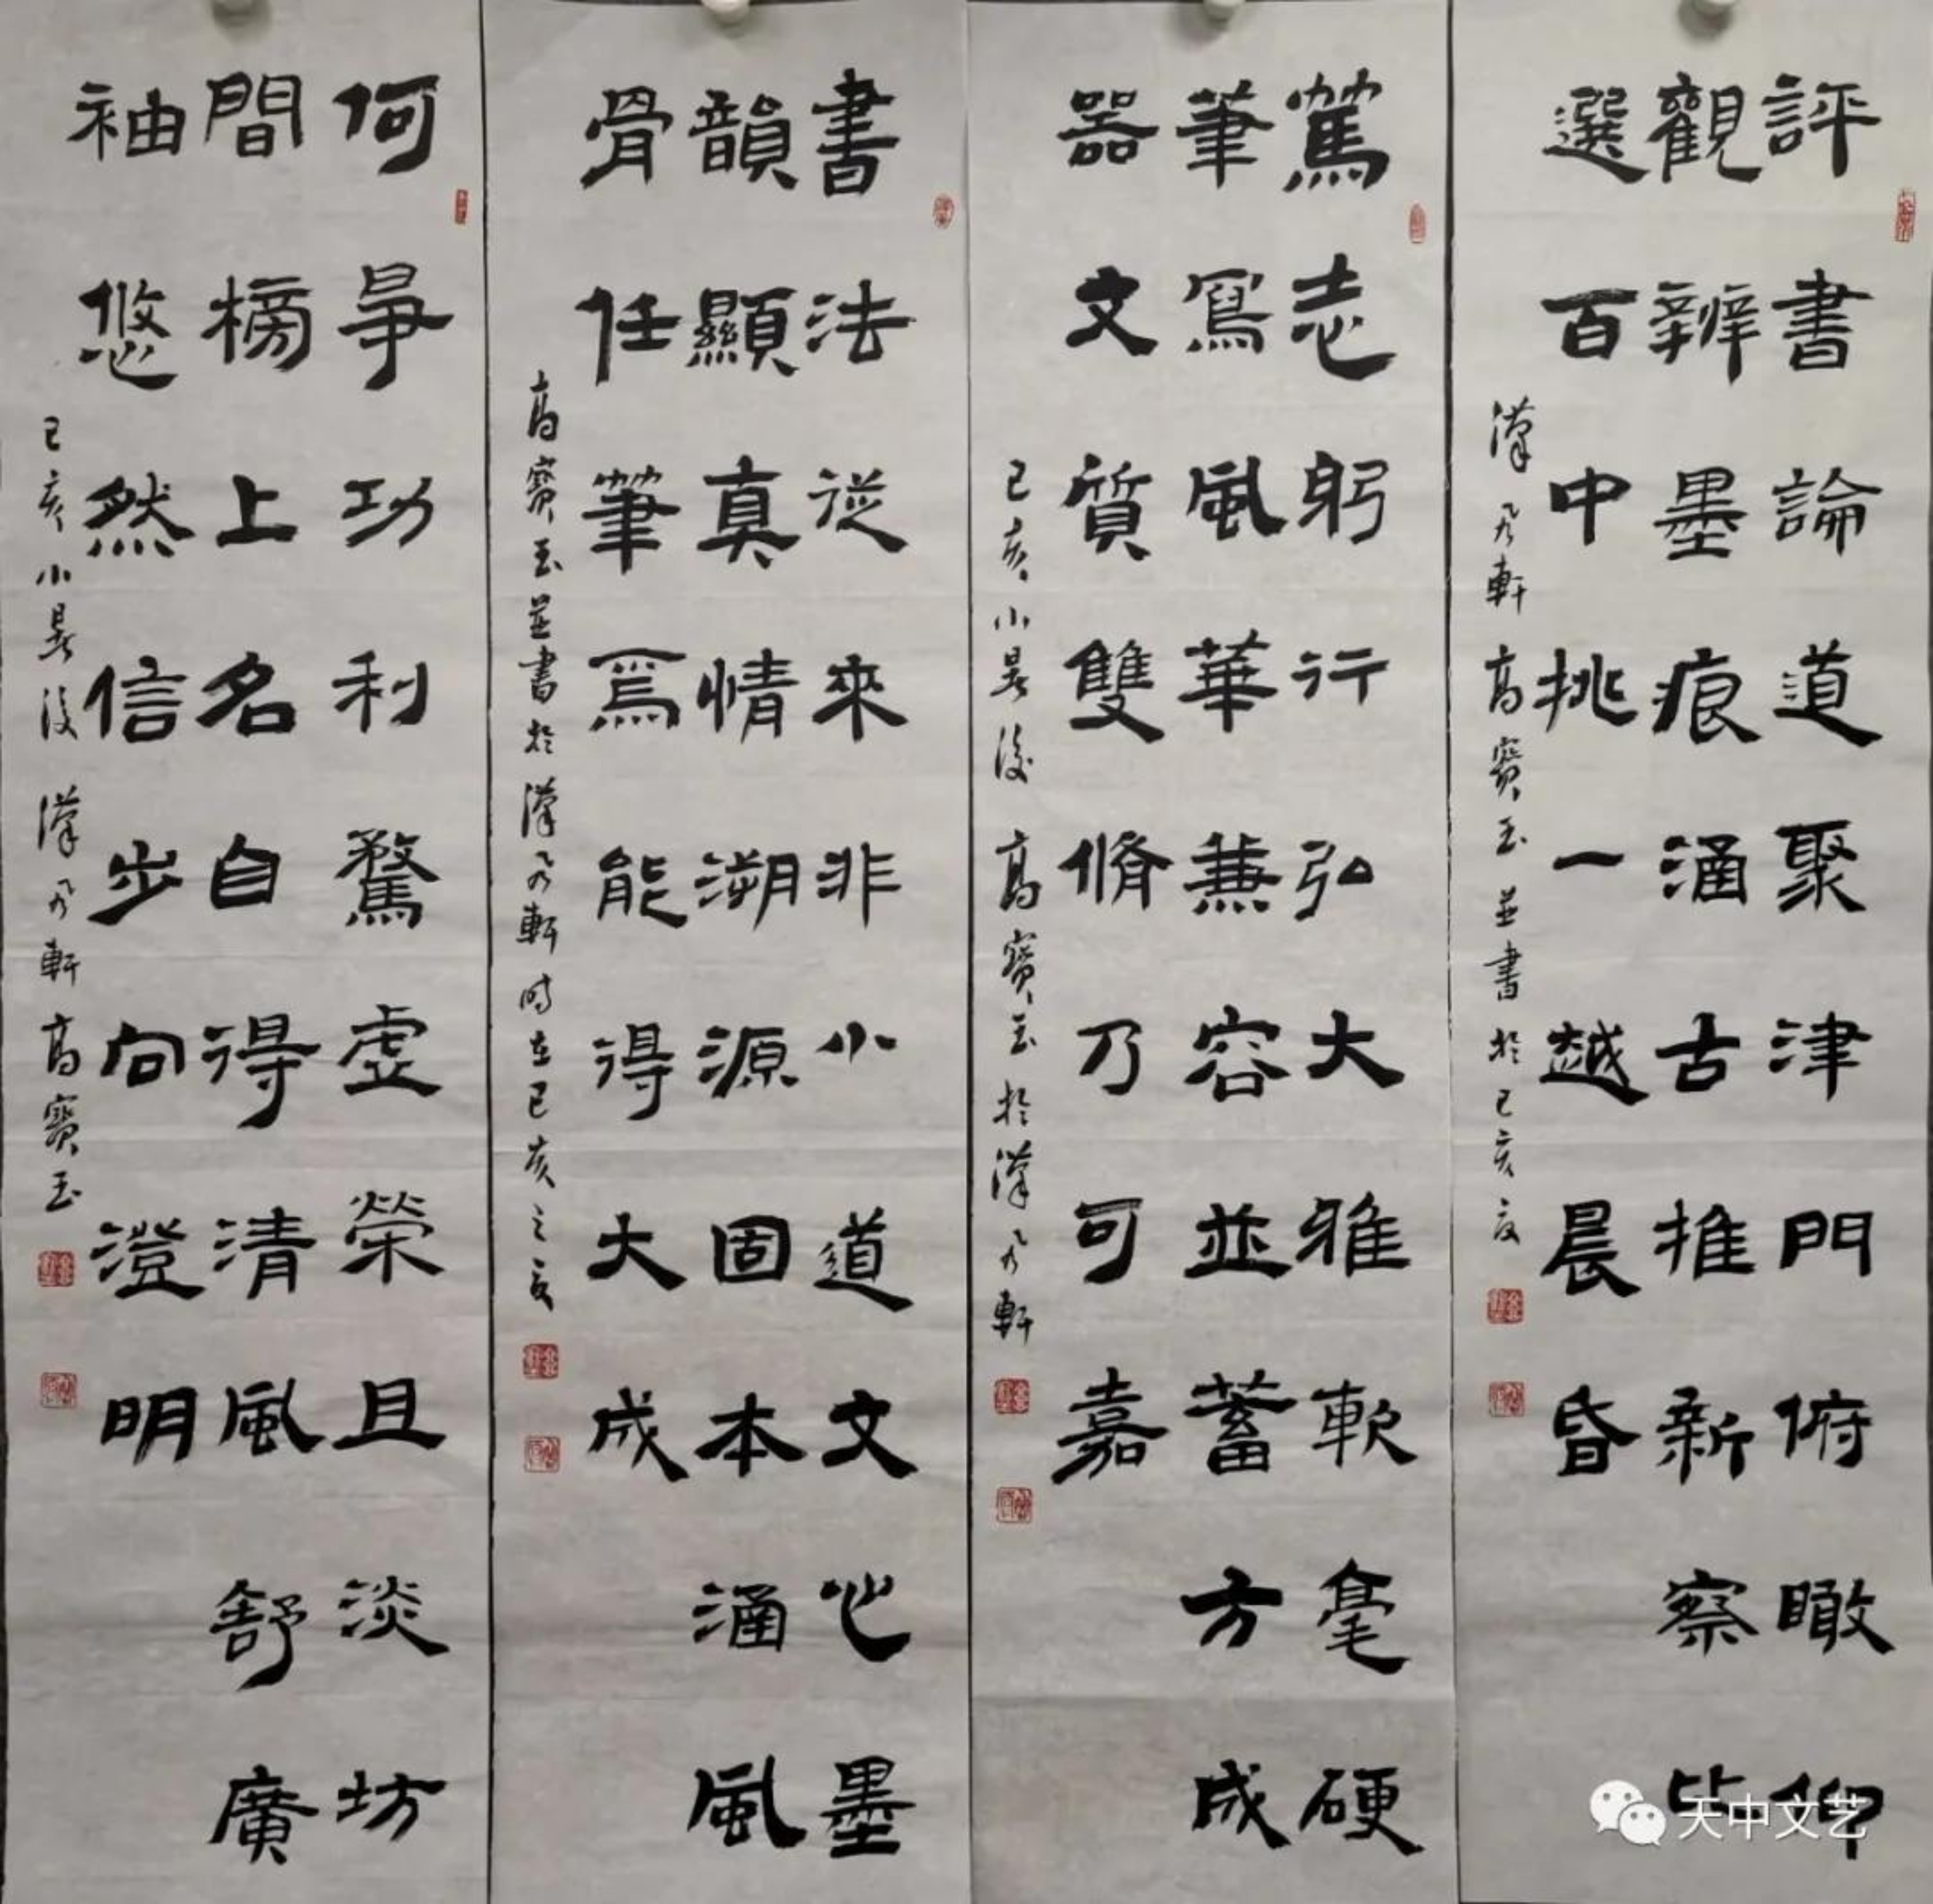 評書論道聚津門俯瞰仰
觀辨墨痕涵古推新察
選百中挑一越晨昏
漢風軒高寶玉並書於己亥夏
篤志躬行弘大雅軟毫硬
筆寫風華兼容並蓄方成
器文質雙脩乃可嘉
己亥小暑後高寶玉於漢風軒
書法從來非小道文心墨
韻顯真情溯源固本涵風
骨任筆爲能得大成
高寶玉並書於漢風軒時在己亥之夏
何爭功利騖虛榮且淡坊
間榜上名自得清風舒廣
袖悠然信步向澄明
己亥小暑後漢風軒高寶玉
天中文艺